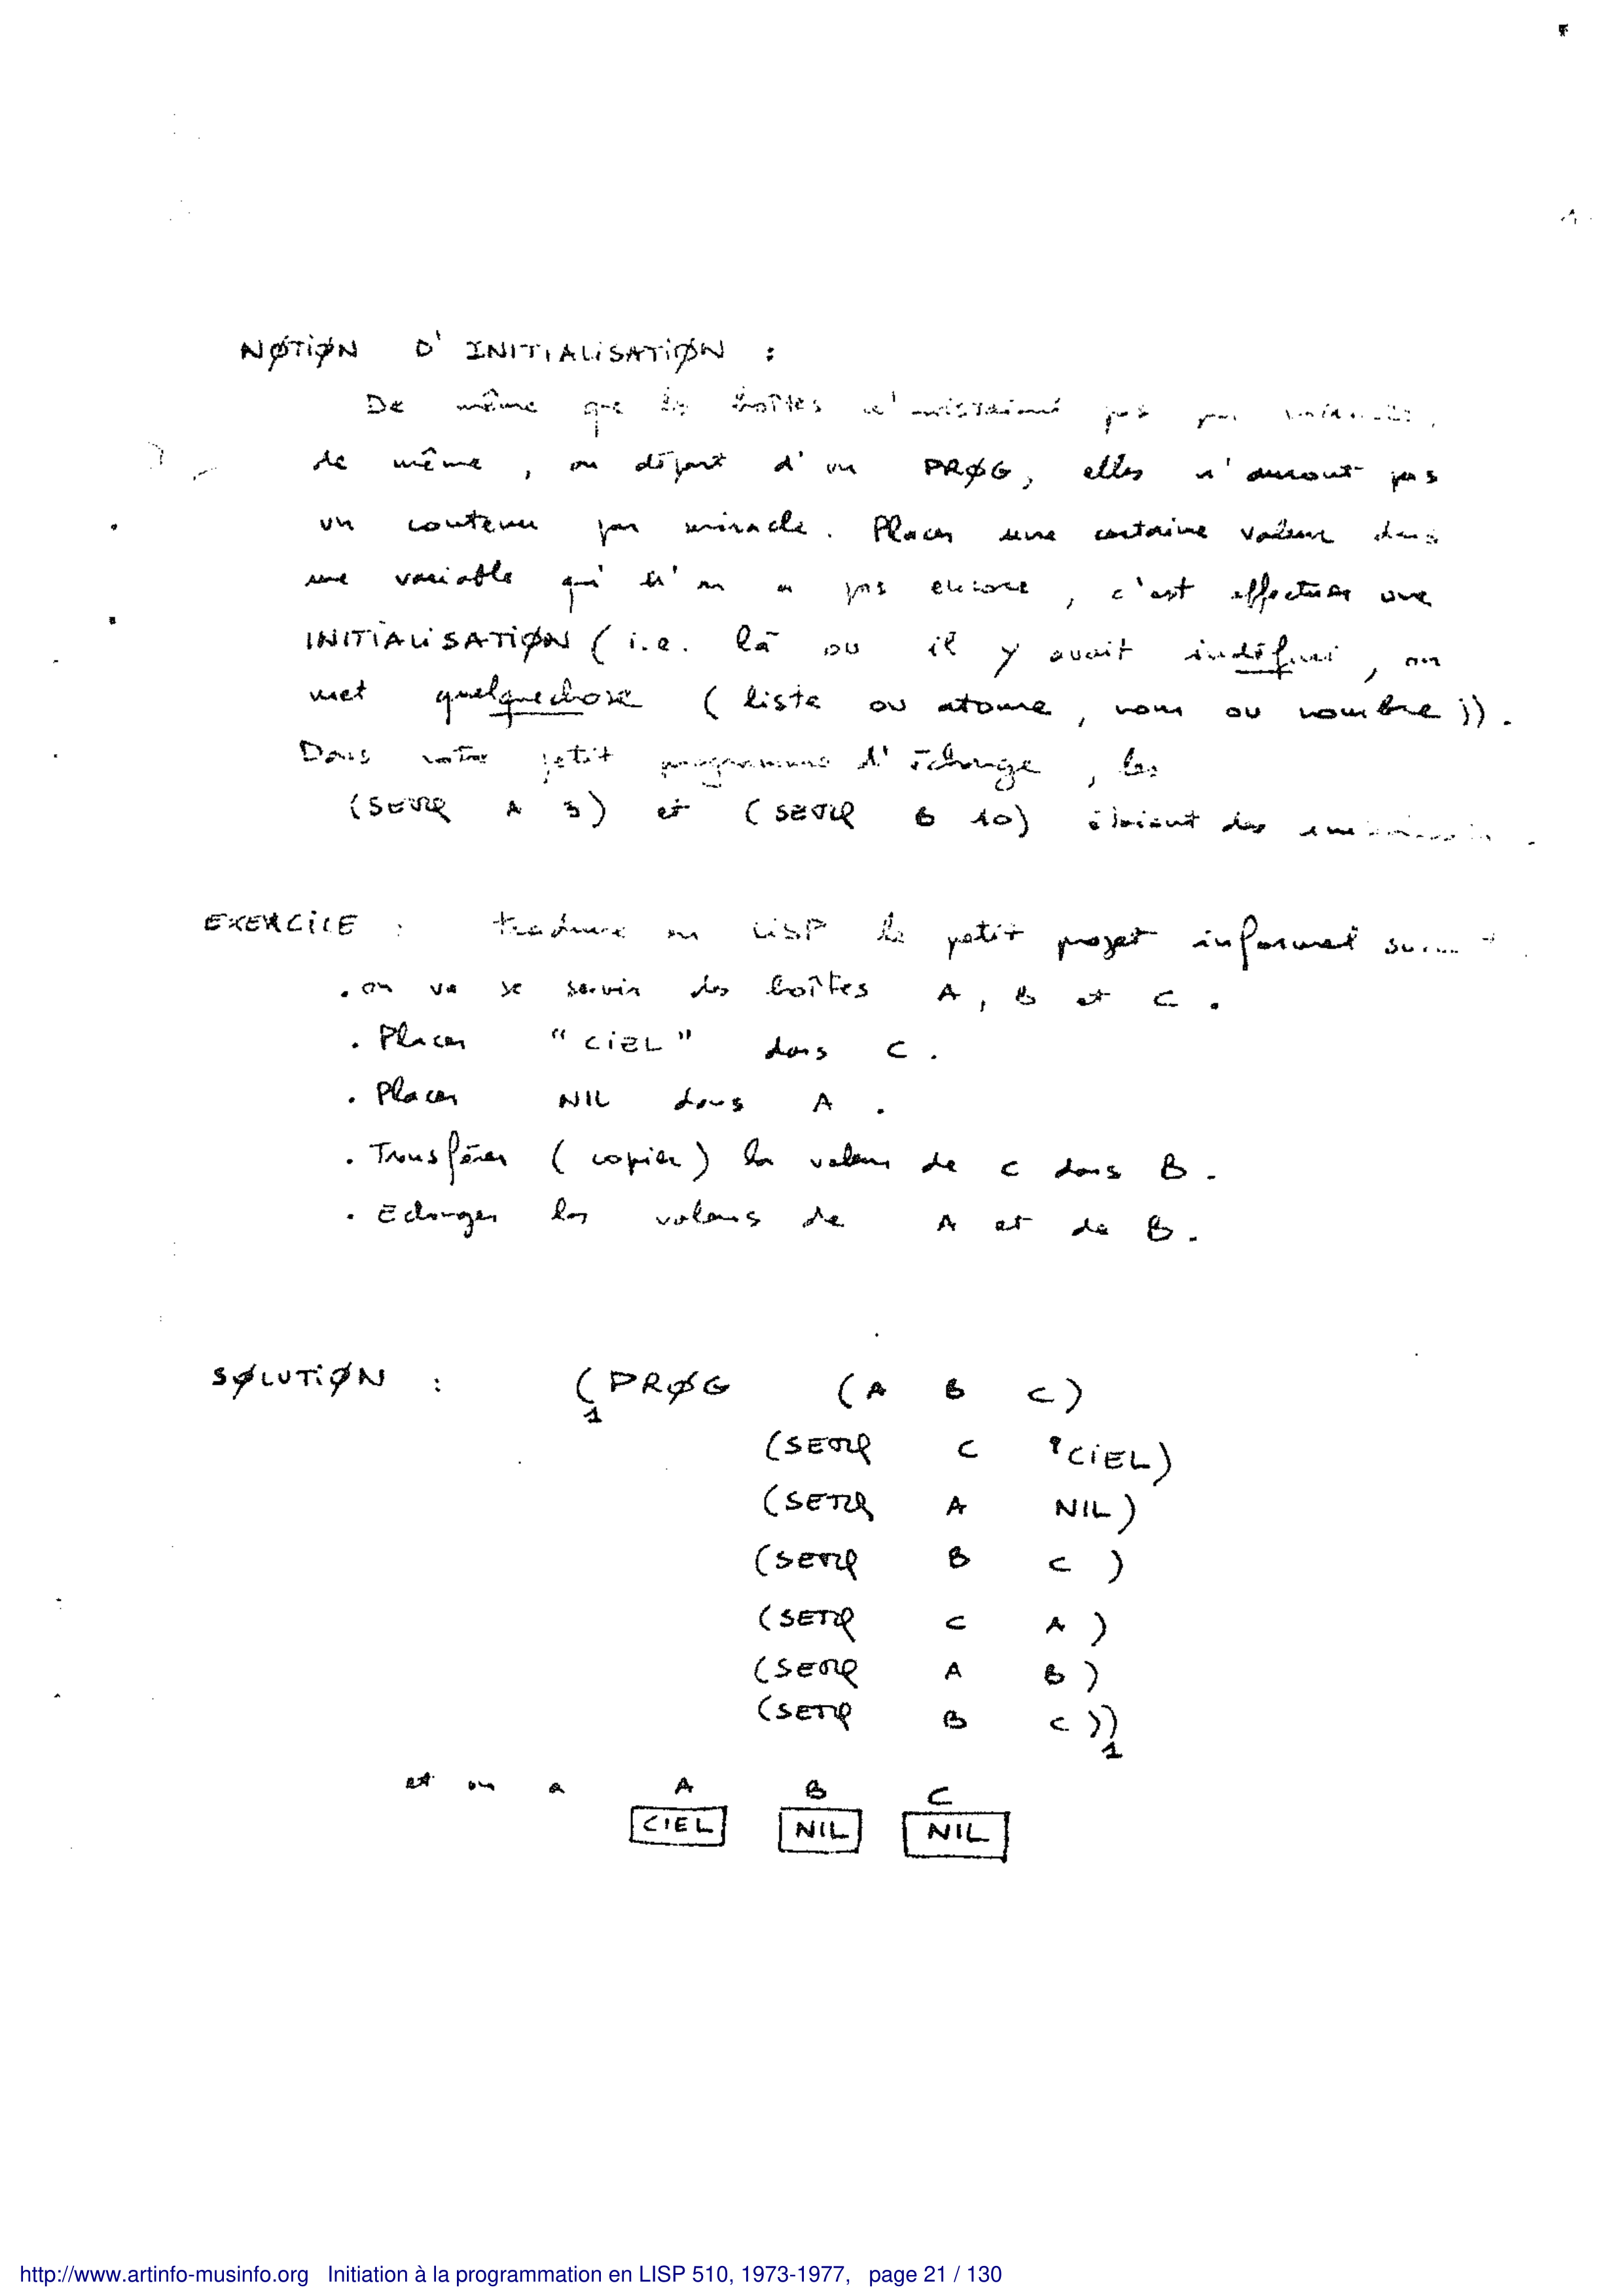 NØTIØN D' INITIALISATIØN :
De même que les boîtes n'existaient pas par
de même, au départ d'un PRØG, elles n'auront pas
un contenu par miracle. Placer une certaine valeur dans
une variable qui n'en a pas encore, c'est effectuer une
INITIALISATIØN (i.e. là ou il y avait indéfini, on
met quelquechose (liste ou atome, nom ou nombre)).
Dans notre petit programme d'échange, les
(SETQ A 3) et (SETQ B 10) étaient des
EXERCICE : traduire en LISP le petit projet informel
. on va se servir des boîtes A, B et C.
. Placer "CIEL" dans C.
. Placer NIL dans A.
. Transférer (copier) la valeur de C dans B.
. Echanger les valeurs de A et de B.
SØLUTIØN : (PRØG (A B C)
1
(SETQ C 'CIEL)
(SETQ A NIL)
(SETQ B C )
(SETQ C A )
(SETQ A B )
(SETQ B C ))
1
et on a A B C
CIEL NIL NIL
http://www.artinfo-musinfo.org Initiation à la programmation en LISP 510, 1973-1977, page 21 / 130